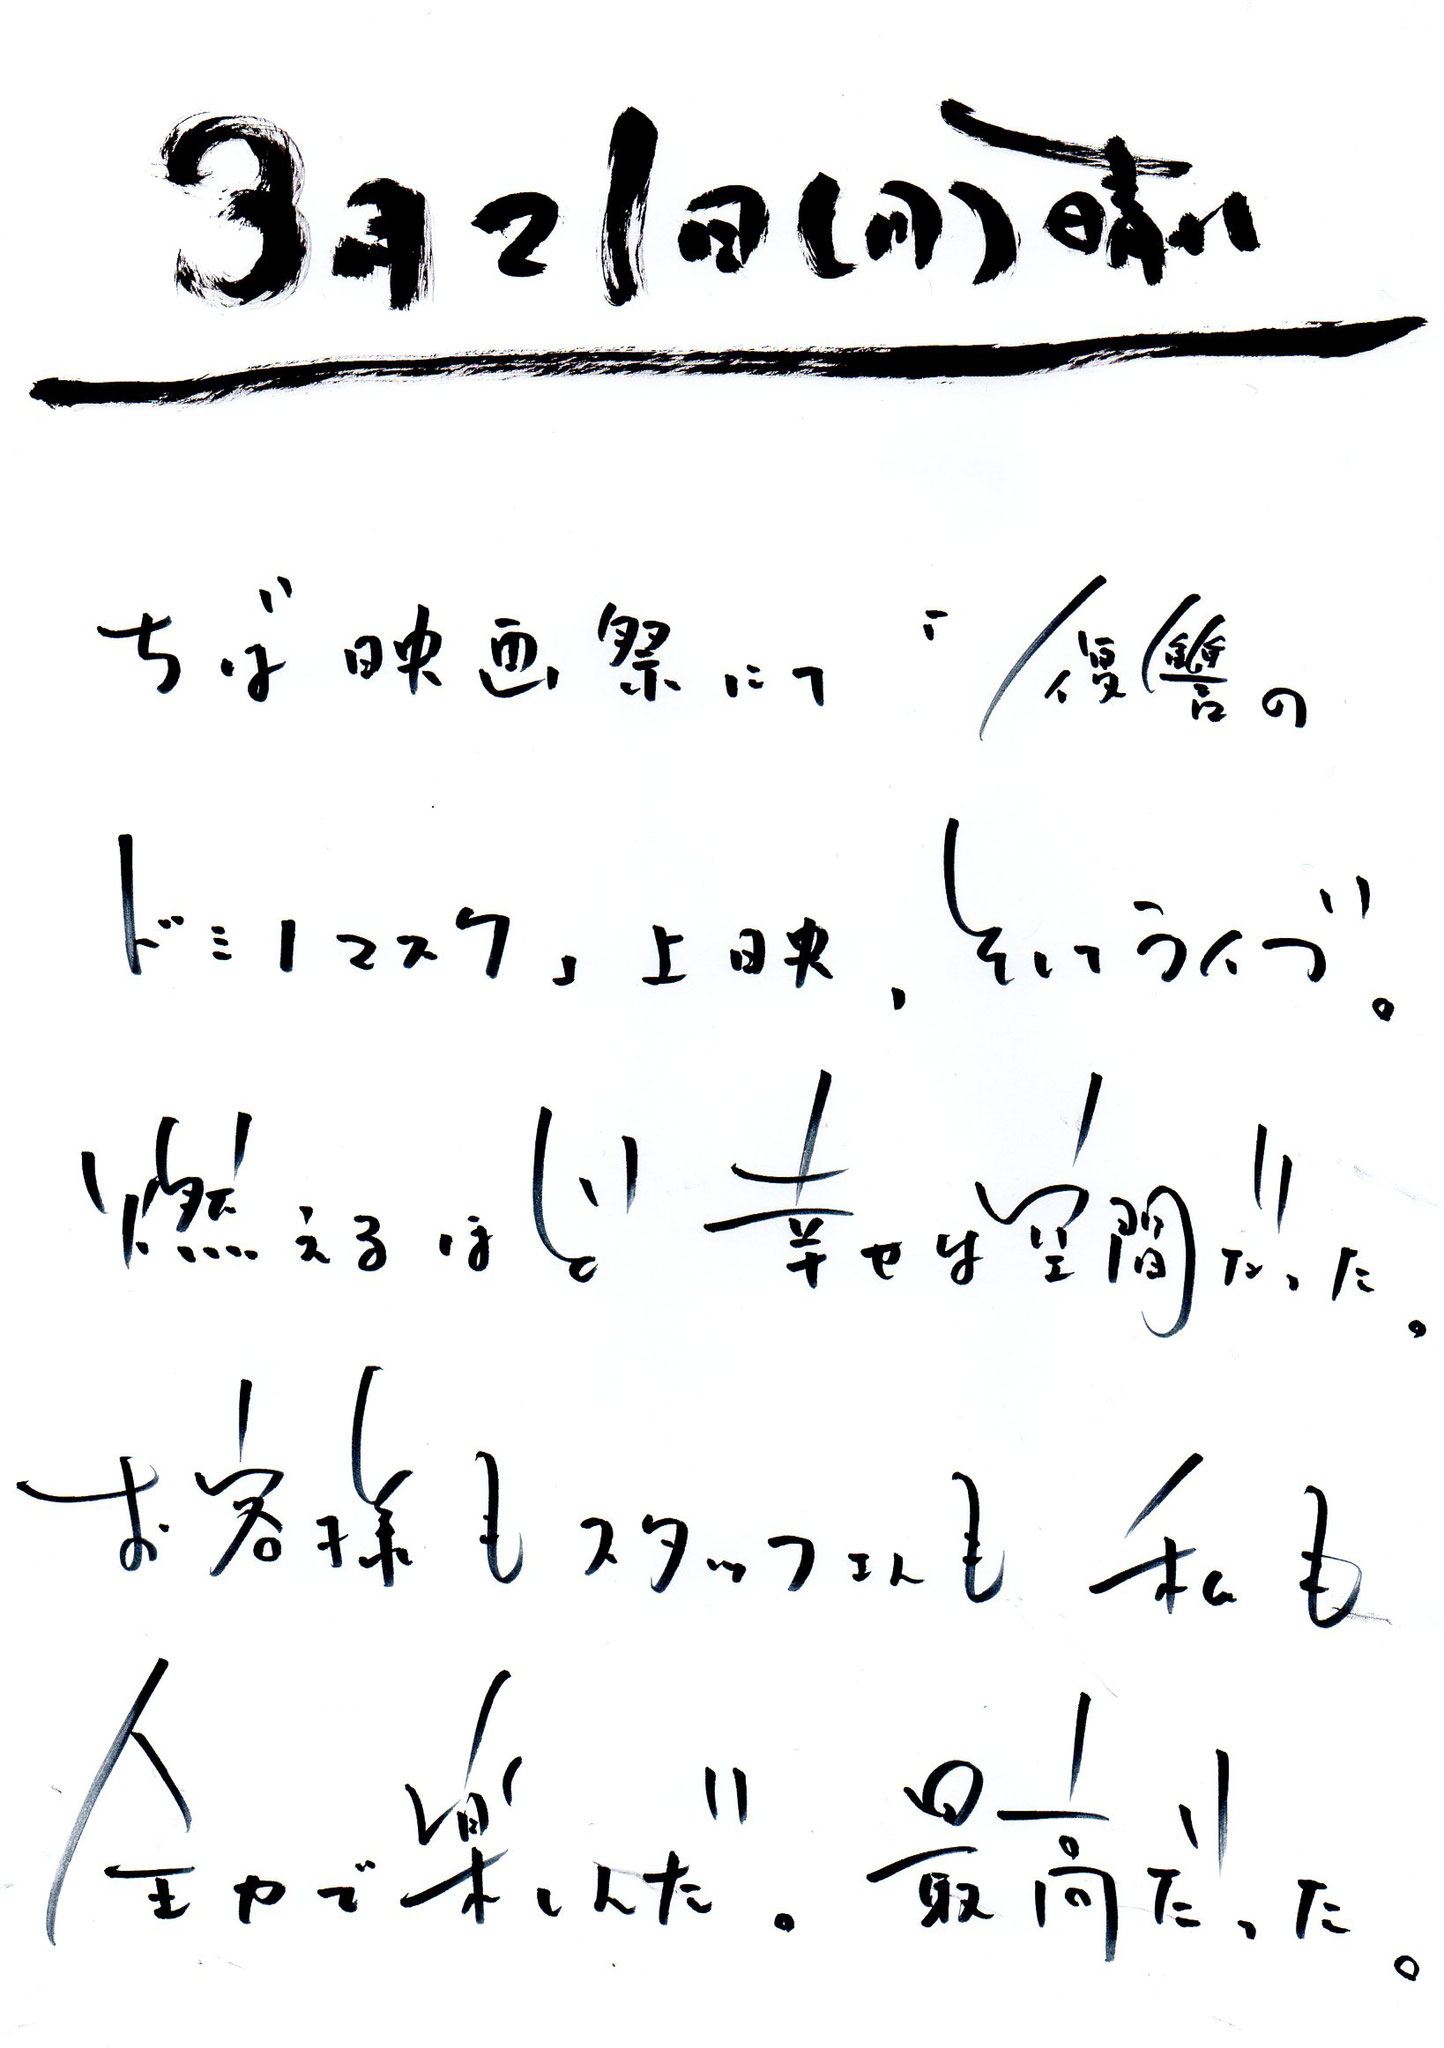 3月21日(月)晴れ
ちば映画祭にて「復讐の
ドミノマスク」上映、そしてライブ。
燃えるほど幸せな空間だった。
お客様もスタッフさんも私も
全力で楽しんだ。最高だった。